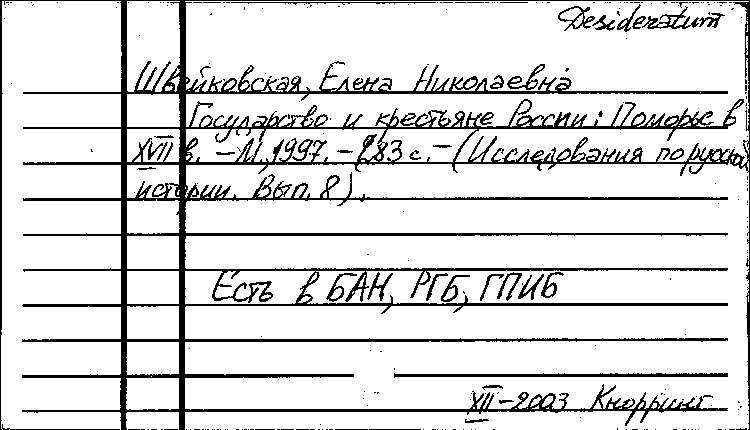 Desideratum
Швейковская, Елена Николаевна
Государство и крестьяне России: Поморье в
XVII в. – М., 1997. – 283 с. – (Исследования по русской
истории. Вып. 8).
Есть в БАН, РГБ, ГПИБ
XII-2003 Кнорринг